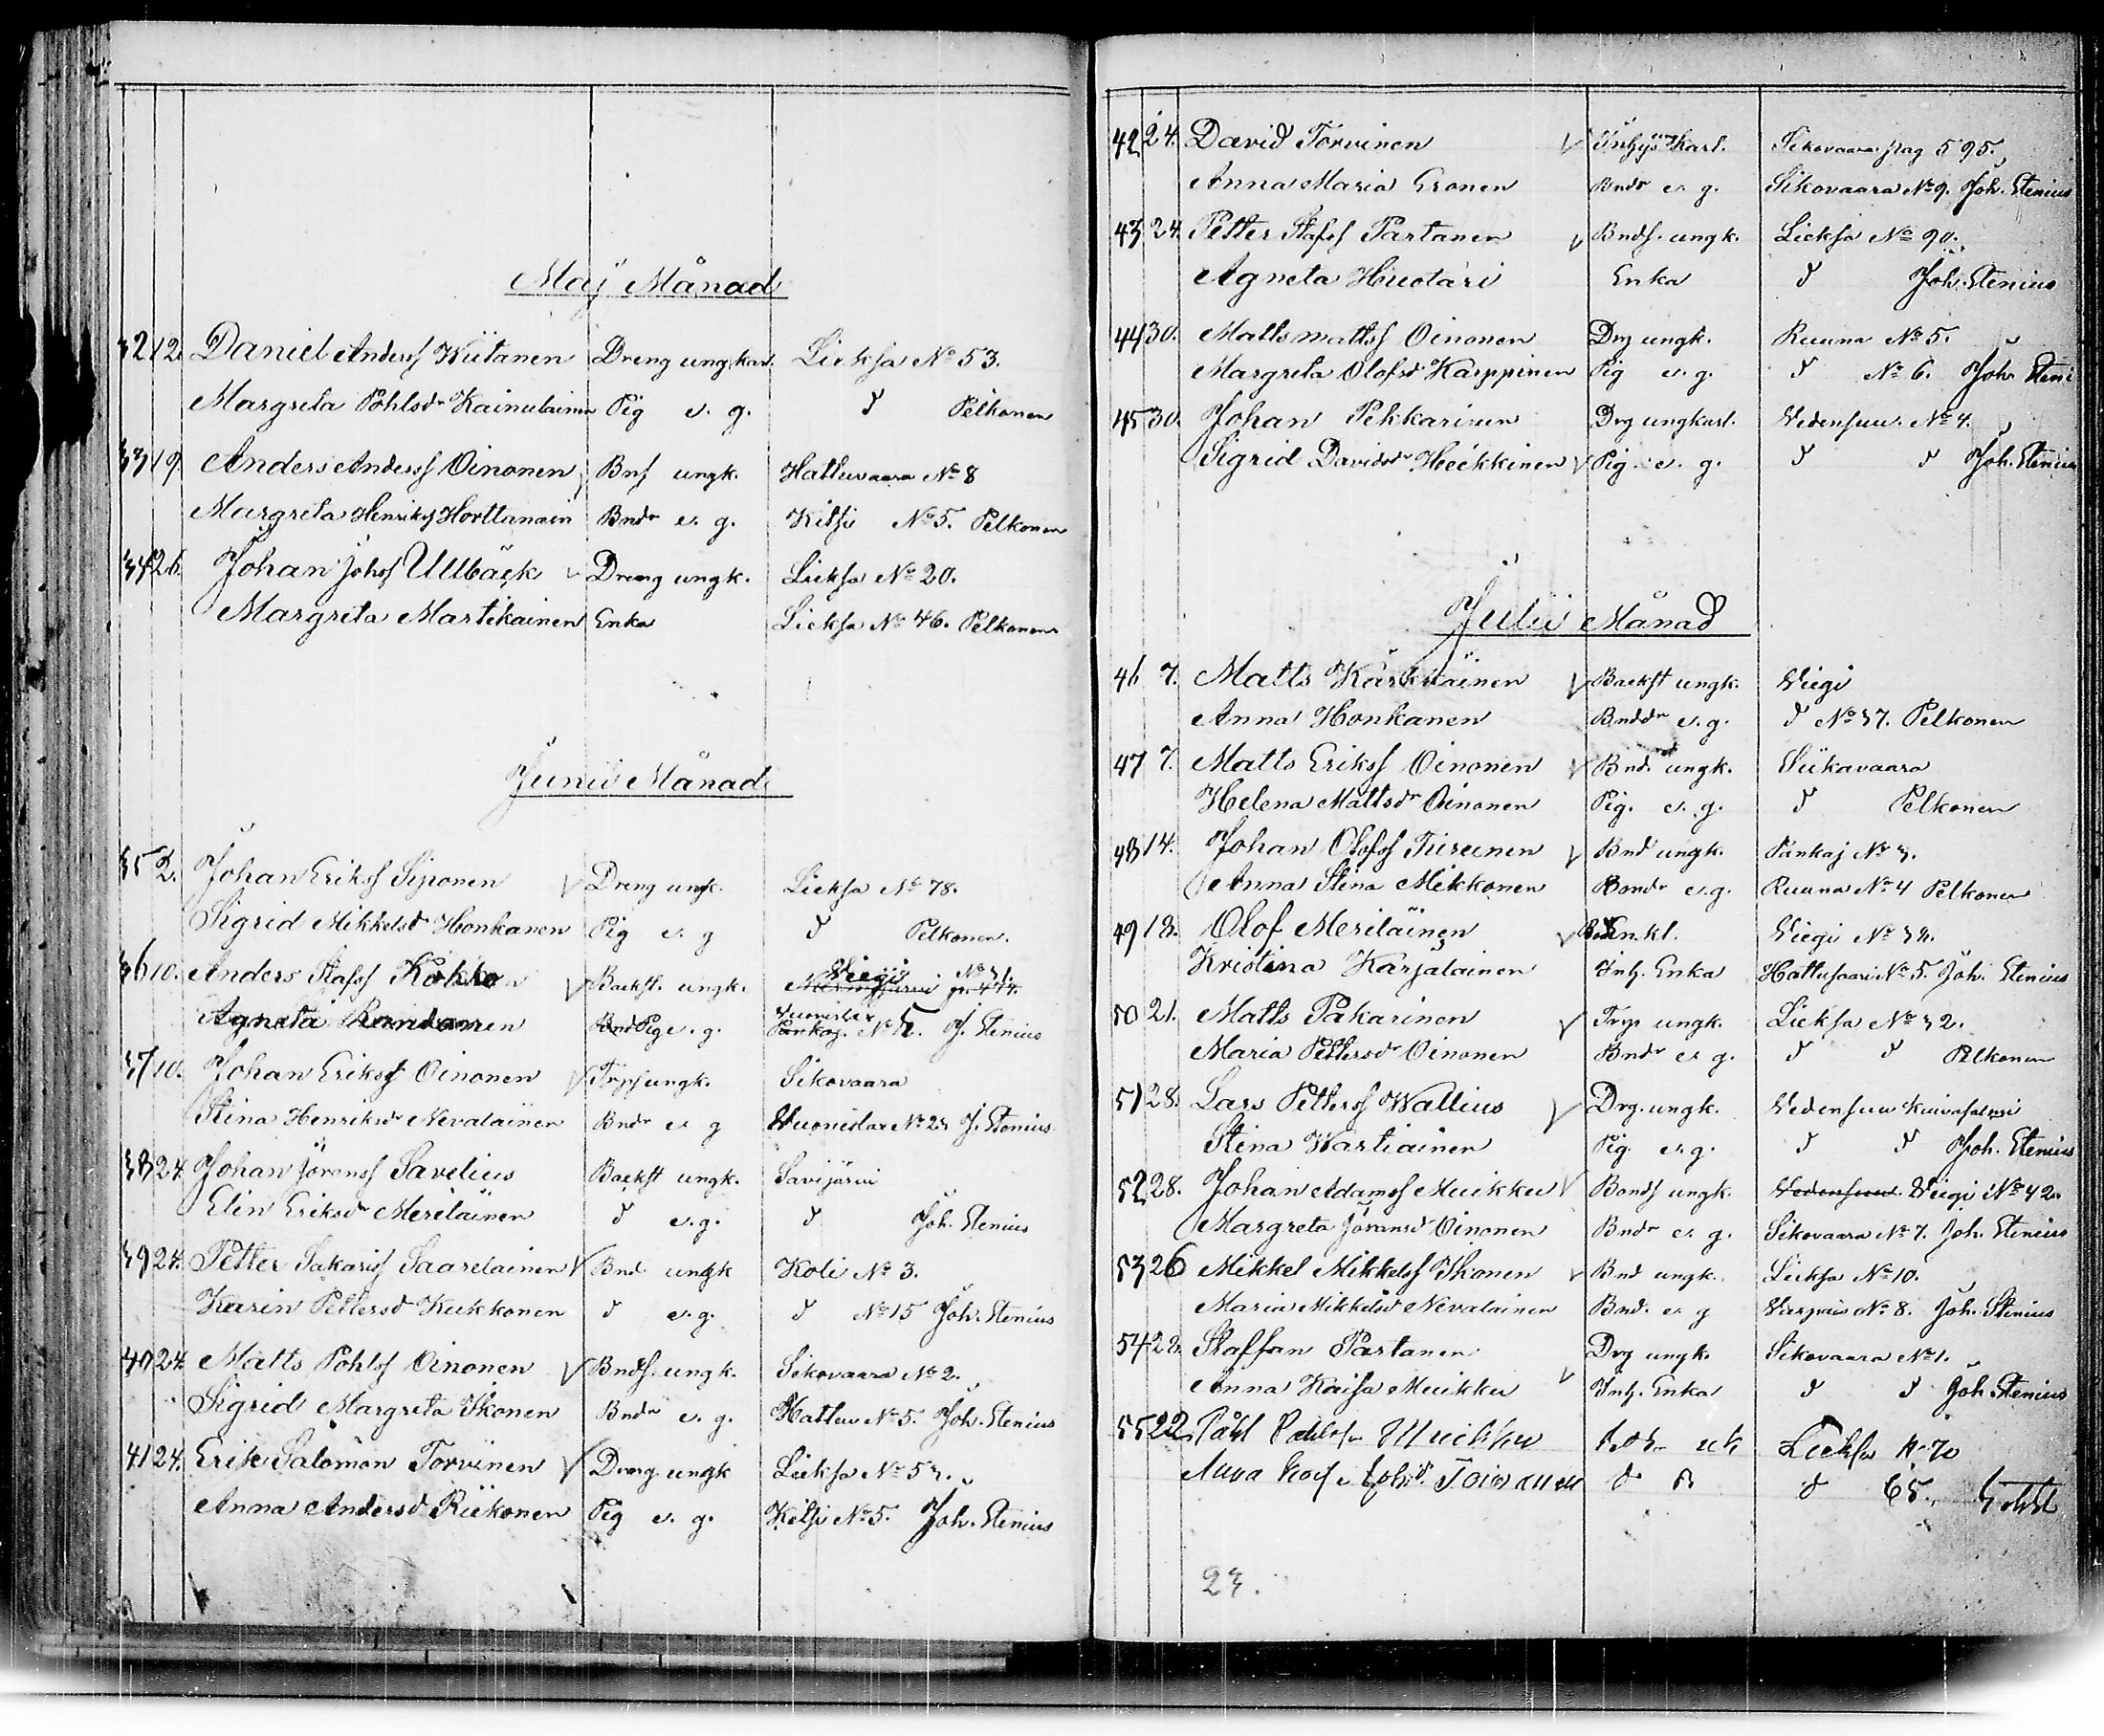 Maj Månad
32 12. Daniel Anderss Kiitanen Dreng ungkarl. Lieksa No 53.
Margreta Pohlsdr Kainulainen Pig e. g. d Pelkonen
33 19 Anders Anderss Oinonen Bns ungk. Hattuvaara No 8
Margreta Henriks Horttanain Bndr e. g. Kitsi No 5. Pelkonen
34 26. Johan Johss Ullbäck Dreng ungk. Lieksa No 20.
Margreta Martikainen Enka Lieksa No 46. Pelkonen
Junii Månad
35 2. Johan Erikss Siponen Dreng ungk. Lieksa No 78.
Sigrid Mikkelsd Honkanen Pig e. g d Pelkonen.
36 10. Anders Stafss Kokko Backst. ungk. Viegi No 31.
Agneta Pig e. g. Vuonislax No 5. J. Stenius
37 10. Johan Erikss Oinonen Trps ungk. Sikovaara
Stina Henriksdr Nevalainen Bndr e. g Vuonislax No 23 J. Stenius
38 24 Johan Joranss Savelius Backst ungk. Savijärvi
Elin Eriksdr Meriläinen d e. g. d Joh. Stenius
39 24. Petter Sakariss Saarelainen Bnd ungk Koli No 3.
Karin Pettersd Kukkonen d e. g. d No 15 Joh. Stenius
40 24. Matts Pohlss Oinonen Bnds. ungk. Sikovaara No 2.
Sigrid Margreta Ikonen Bndr e. g. Hattuv No 5. Joh. Stenius
41 24. Erik Salomon Torvinen Dreng ungk Lieksa No 53.
Anna Andersd Riikonen Pig e. g. Kitsi No 5. Joh. Stenius
42 24. David Torvinen Inhys karl. Sikovaara pag 595.
Anna Maria Eronen Bndr e. g. Sikovaara No 9. Joh. Stenius
43 24. Petter Stafss Partanen Bnds. ungk. Lieksa No 90.
Agneta Huotari Enka d Joh. Stenius
44 30. Matts mattss Oinonen Drg ungk. Ruuna No 5.
Margreta Olofsd Karppinen Pig e. g. d No 6. Joh. Steni
45 30. Johan Pekkarinen Drg ungkarl. Vedensuu No 4.
Sigrid Davidsdr Heikkinen Pig e. g. d d Joh. Stenius
Julii Månad
46 7. Matts Kärkkäinen Backst ungk. Viegi
Anna Honkanen Bnddr e. g. d No 37. Pelkonen
47 7. Matts Erikss Oinonen Bnd. ungk. Siikavaara
Helena Mattsdr Oinonen Pig. e. g. d Pelkonen
48 14. Johan Olofss Turunen Bnd ungk. Pankaj No 3.
Anna Stina Mikkonen Bondr e. g. Ruuna No 4 Pelkonen
49 18. Olof Meriläinen Enkl. Viegi No 32.
Kristina Karjalainen Inh. Enka Hattusaari No 5. Joh. Stenius
50 21. Matts Pakarinen Trp ungk. Lieksa No 32.
Maria Pettersdr Oinonen Bndr e. g. d d Pelkonen
51 28. Lars Petterss Wallius Drg. ungk. Vedensuu Kuivasalmi
Stina Wartiainen Pig e. g. d d Joh. Stenius
52 28. Johan Adamss Muikku Bonds ungk. Vedensuu Viegi No 42.
Margreta Joransd Oinonen Bndr e. g. Sikovaara No 7. Joh. Stenius
53 26 Mikkel Mikkelss Ikonen Bnd ungk. Lieksa No 10.
Maria Mikkelsd Nevalainen Bnd. e. g Varpais No 8. Joh. Stenius
54 28. Staffan Partanen Drg ungk. Sikovaara No 1.
Anna Kaisa Muikku Inh. Enka d d Joh. Stenius
55 22. Påhl Pahlss Muikku Lieksa N 70
Anna Toivanen d d 65.
23.